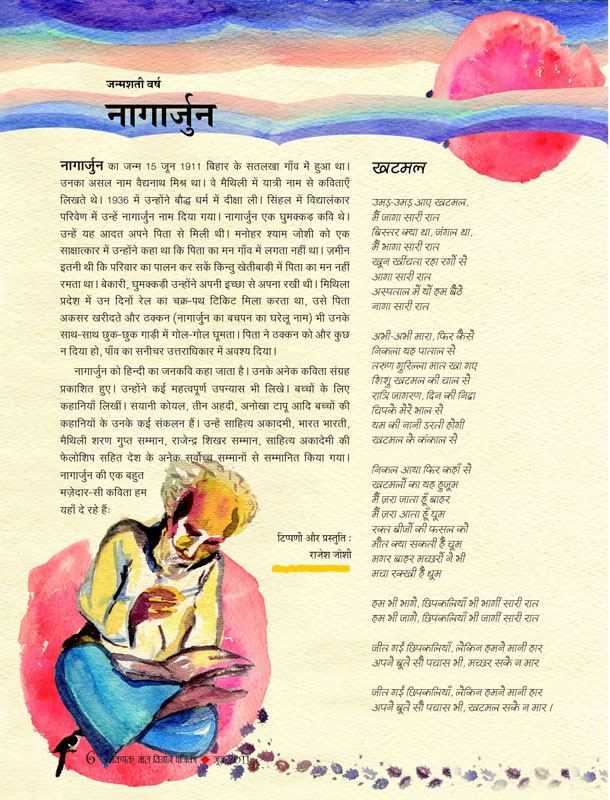 जन्मशती वर्ष
नागार्जुन
नागार्जुन का जन्म 15 जून 1911 बिहार के सतलखा गाँव में हुआ था।
उनका असल नाम वैद्यनाथ मिश्र था। वे मैथिली में यात्री नाम से कविताएँ
लिखते थे। 1936 में उन्होंने बौद्ध धर्म में दीक्षा ली। सिंहल में विद्यालंकार
परिवेण में उन्हें नागार्जुन नाम दिया गया। नागार्जुन एक घुमक्कड़ कवि थे।
उन्हें यह आदत अपने पिता से मिली थी। मनोहर श्याम जोशी को एक
साक्षात्कार में उन्होंने कहा था कि पिता का मन गाँव में लगता नहीं था। ज़मीन
इतनी थी कि परिवार का पालन कर सकें किन्तु खेतीबाड़ी में पिता का मन नहीं
रमता था। बेकारी, घुमक्कड़ी उन्होंने अपनी इच्छा से अपना रखी थी। मिथिला
प्रदेश में उन दिनों रेल का चक्र-पथ टिकिट मिला करता था, उसे पिता
अकसर खरीदते और ठक्कन (नागार्जुन का बचपन का घरेलू नाम) भी उनके
साथ-साथ छुक-छुक गाड़ी में गोल-गोल घूमता। पिता ने ठक्कन को और कुछ
न दिया हो, पाँव का सनीचर उत्तराधिकार में अवश्य दिया।
नागार्जुन को हिन्दी का जनकवि कहा जाता है। उनके अनेक कविता संग्रह
प्रकाशित हुए। उन्होंने कई महत्वपूर्ण उपन्यास भी लिखे। बच्चों के लिए
कहानियाँ लिखीं। सयानी कोयल, तीन अहदी, अनोखा टापू आदि बच्चों की
कहानियों के उनके कई संकलन हैं। उन्हें साहित्य अकादमी, भारत भारती,
मैथिली शरण गुप्त सम्मान, राजेन्द्र शिखर सम्मान, साहित्य अकादेमी की
फेलोशिप सहित देश के अनेक सर्वोच्च सम्मानों से सम्मानित किया गया।
नागार्जुन की एक बहुत
मज़ेदार-सी कविता हम
यहाँ दे रहे हैंः
टिप्पणी और प्रस्तुति :
राजेश जोशी
खटमल
उमड़-उमड़ आए खटमल,
मैं जागा सारी रात
बिस्तर क्या था, जंगल था,
मैं भागा सारी रात
खून खींचता रहा रगों से
आगा सारी रात
अस्पताल में यों हम बैठे
नागा सारी रात
अभी-अभी मारा, फिर कैसे
निकला यह पाताल से
तरुण गुरिल्ला मात खा गए
शिशु खटमल की चाल से
रात्रि जागरण, दिन की निद्रा
चिपके मेरे भाल से
यम की नानी डरती होगी
खटमल के कंकाल से
निकल आया फिर कहाँ से
खटमलों का यह हुजूम
मैं ज़रा जाता हूँ बाहर
मैं ज़रा आता हूँ घूम
रक्त बीजों की फसल को
मौत क्या सकती है चूम
मगर बाहर मच्छरों ने भी
मचा रक्खी है धूम
हम भी भागे, छिपकलियाँ भी भागीं सारी रात
हम भी जागे, छिपकलियाँ भी जागीं सारी रात
जीत गईं छिपकलियाँ, लेकिन हमने मानी हार
अपने बूते सौ पचास भी, मच्छर सके न मार
जीत गईं छिपकलियाँ, लेकिन हमने मानी हार
अपने बूते सौ पचास भी, खटमल सके न मार।
6 चकमक बाल विज्ञान पत्रिका जून 2011